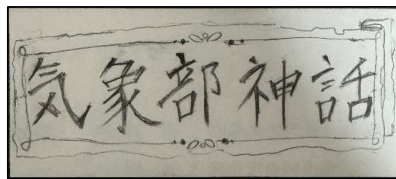 気象部神話